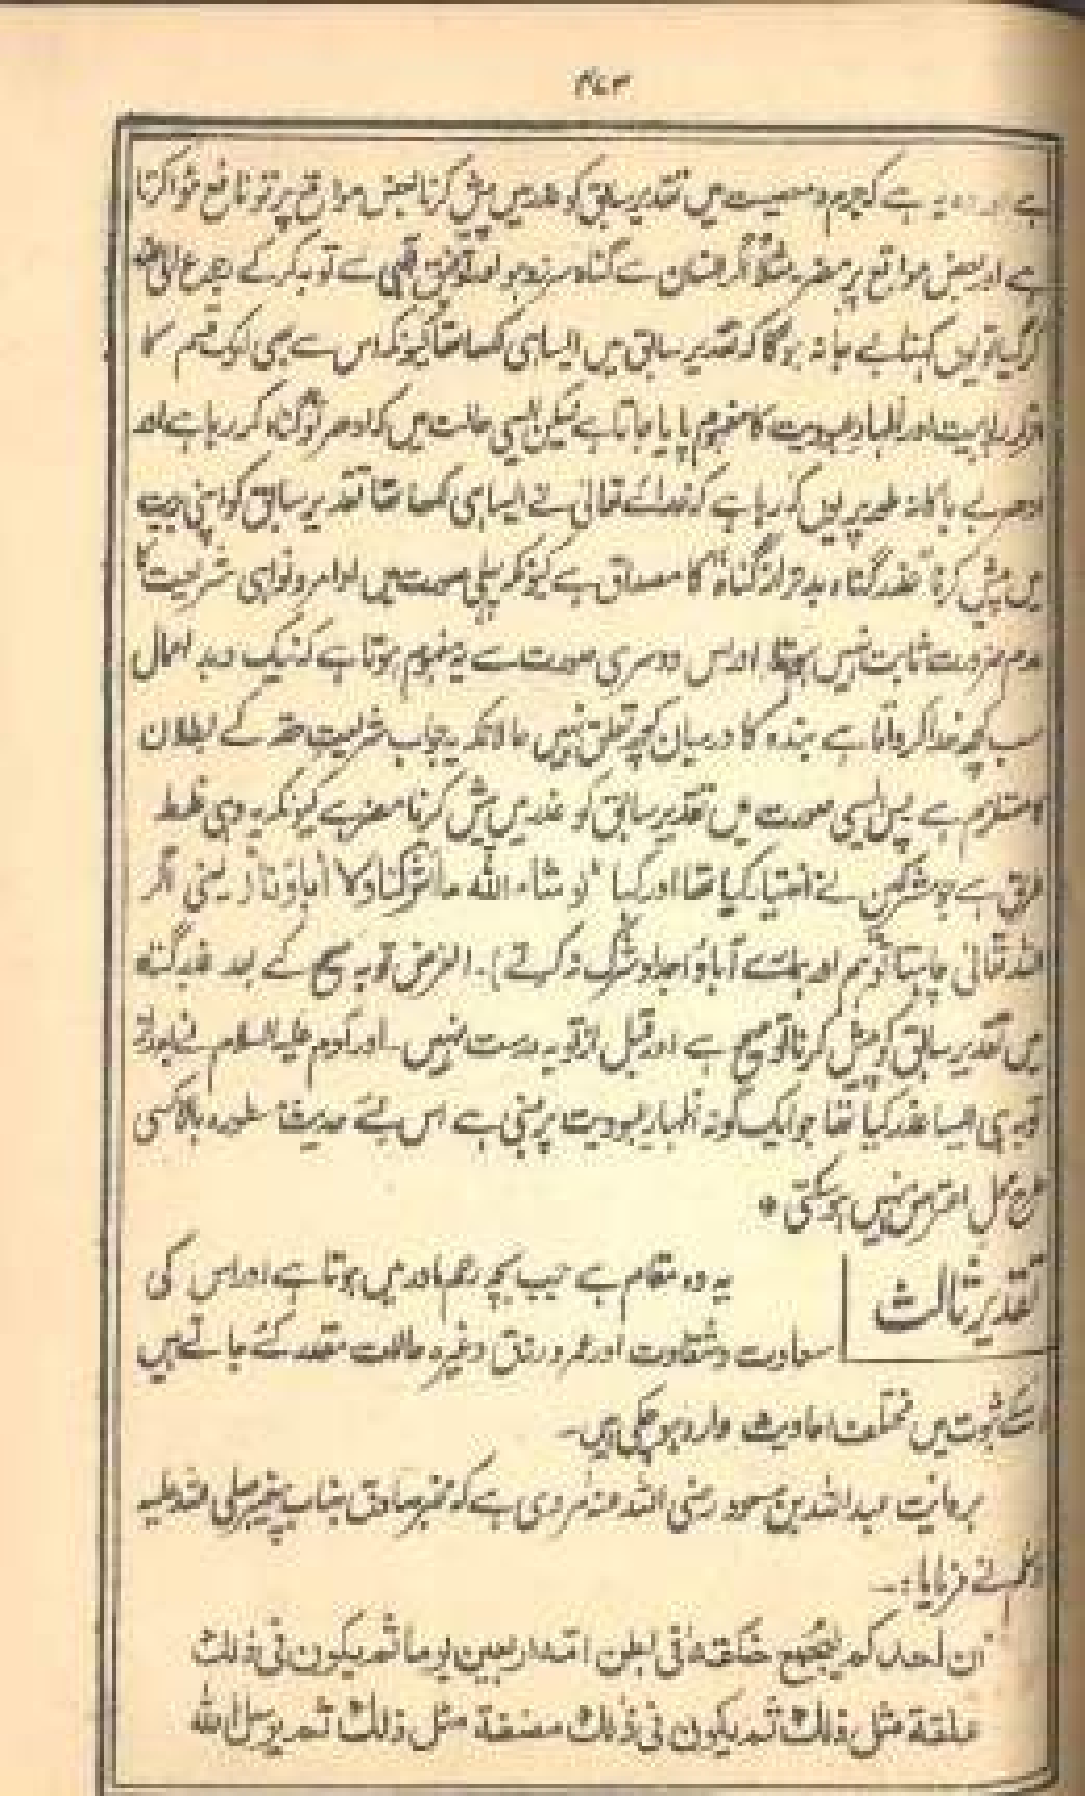 ۴۷۳
ہے اور وہ یہ ہے کہ جرم و معصیت میں تقدیر سابق کو عذر میں پیش کرنا بعض مواقع پر تو نافع ہوا کرتا
ہے اور بعض مواقع پر مضر مثلاً اگر انسان سے گناہ سرزد ہو اور توفیق سے توبہ کر کے رجوع الی اللہ
کر گیا تو یوں کہنا بے جا نہ ہوگا کہ تقدیر سابق میں ایسا ہی لکھا تھا کیونکہ اس سے بھی ایک قسم کا
اقرار ربوبیت اور اظہار عبودیت کا مفہوم پایا جاتا ہے لیکن ایسی حالت میں کہ ادھر تو گناہ کر رہا ہے اور
ادھر بے باکانہ طور پر یوں کہ رہا ہے کہ خدائے تعالیٰ نے ایسا ہی لکھا تھا تقدیر سابق کو اپنی بریت
میں پیش کرنا "عذر گناہ بدتر از گناہ" کا مصداق ہے کیونکہ پہلی صورت میں اوامر و نواہی شریعت کا
عدم ضرورت ثابت نہیں ہوتا اور اس دوسری صورت سے یہ مفہوم ہوتا ہے کہ نیک و بد اعمال
سب کچھ خدا کرواتا ہے بندہ کا درمیان کچھ تعلق نہیں حالانکہ یہ جواب شریعت حقہ کے بطلان
کا مستلزم ہے پس ایسی صورت میں تقدیر سابق کو عذر میں پیش کرنا مضر ہے کیونکہ یہ وہی غلط
طریق ہے جو مشرکین نے اختیار کیا تھا اور کہا "لو شاء اللہ ما اشرکنا ولا آباؤنا" (یعنی اگر
اللہ تعالیٰ چاہتا تو ہم اور ہمارے آباؤ اجداد شرک نہ کرتے)۔ الغرض توبہ صحیح کے بعد عذر گناہ
میں تقدیر سابق کو پیش کرنا تو صحیح ہے اور قبل از توبہ درست نہیں۔ اور آدم علیہ السلام نے بعد از
توبہ ہی ایسا عذر کیا تھا جو ایک گونہ اظہار عبودیت پر مبنی ہے اس لئے حدیث بالا کسی
طرح محل اعتراض نہیں ہو سکتی *
تقدیر ثالث
یہ وہ مقام ہے جب بچہ رحم مادر میں ہوتا ہے اور اس کی
سعادت و شقاوت اور عمر و رزق وغیرہ حالات مقدر کئے جاتے ہیں
اسکے ثبوت میں مختلف احادیث وارد ہو چکی ہیں۔
بروایت عبداللہ بن مسعود رضی اللہ عنہ مروی ہے کہ مخبر صادق جناب پیغمبر صلی اللہ علیہ
وسلم نے فرمایا:۔
ان احدکم لیجمع خلقہ فی بطن امہ اربعین یوما ثم یکون فی ذلک
علقۃ مثل ذلک ثم یکون فی ذلک مضغۃ مثل ذلک ثم یرسل اللہ